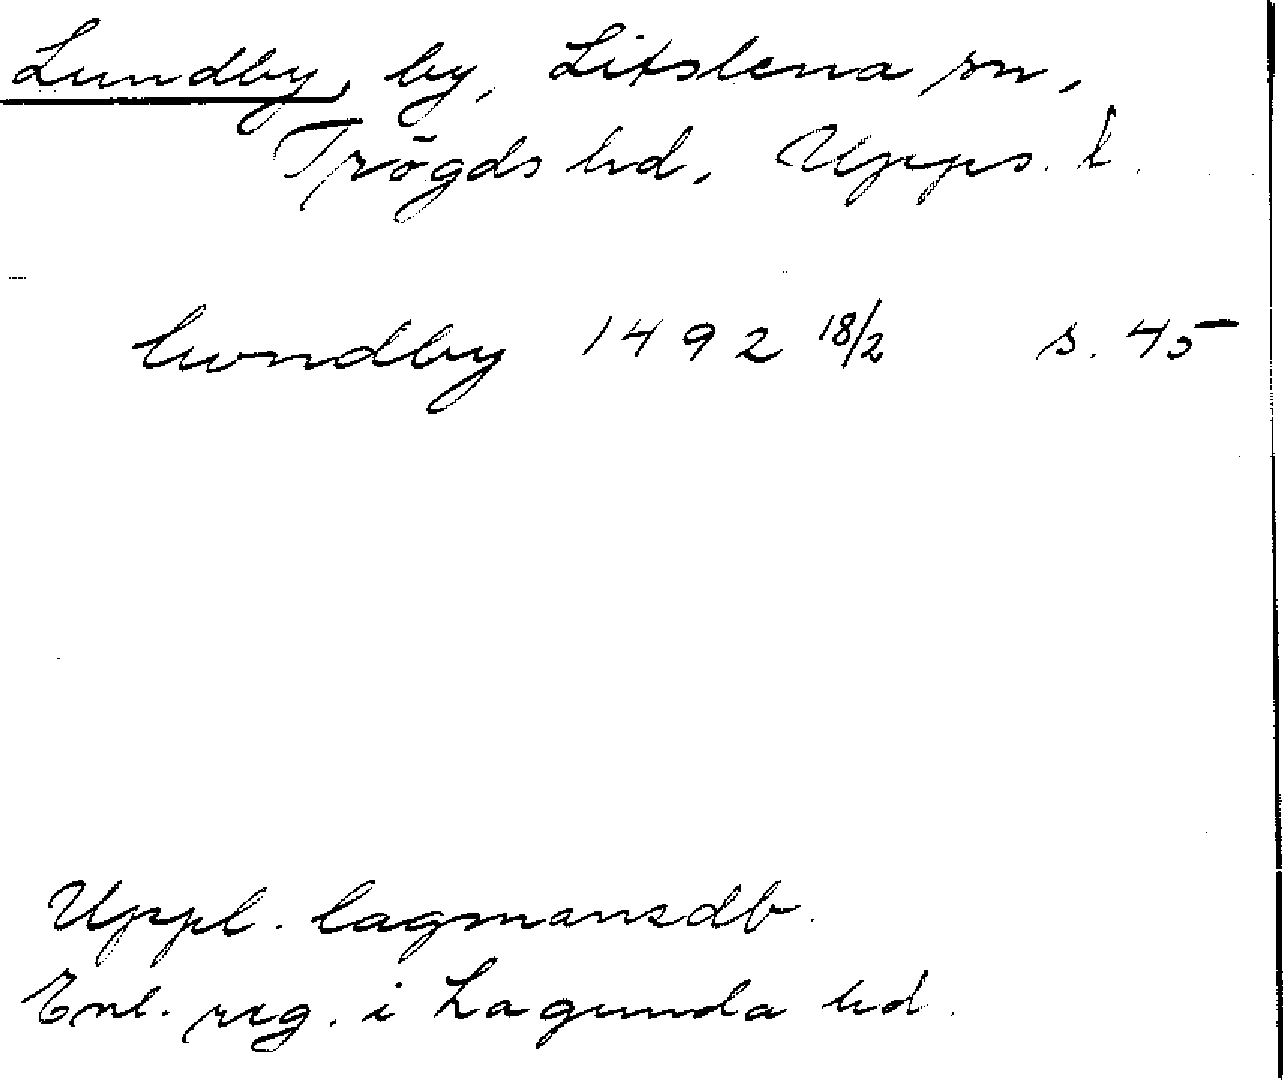 Lundby, by, Litslena sn,
Trögds hd, Upps. l.
lwndby 1492 18/2 s. 45
Uppl. lagmansdb.
Enl. reg. i Lagunda hd.